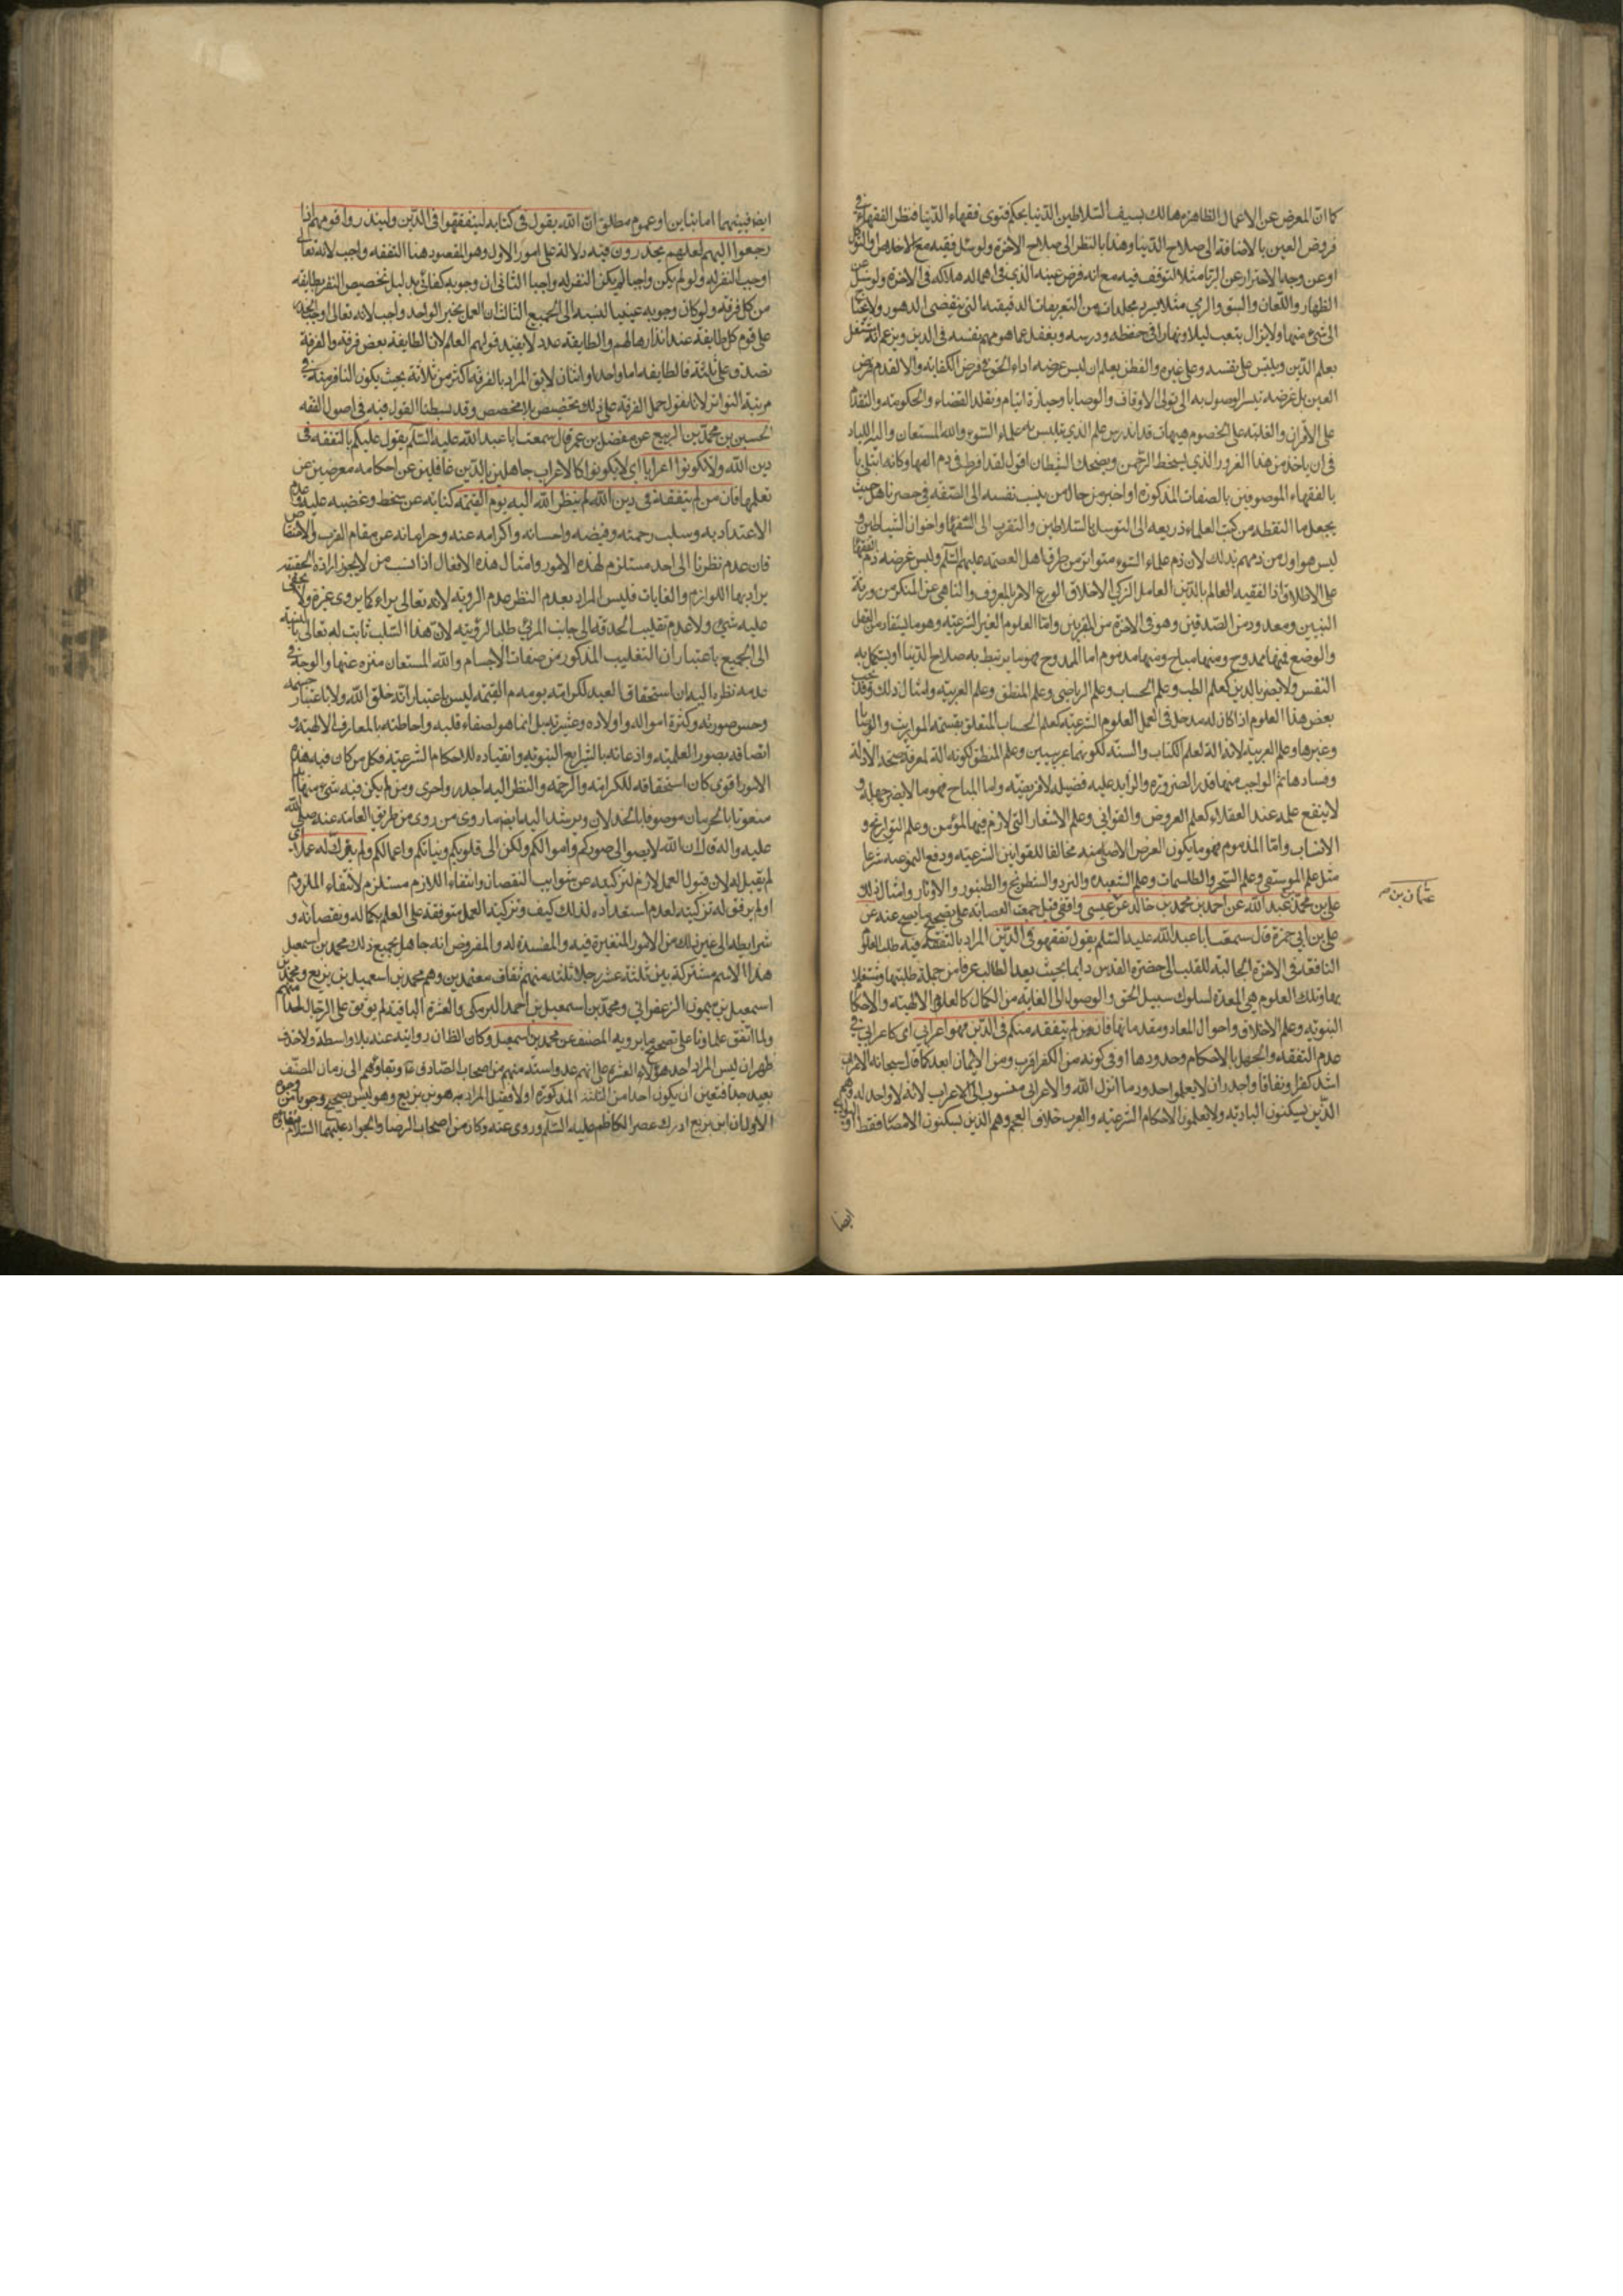 كما ان المعرض عن الاعمال الظاهرة هالك بسيف السلاطين الدنيا بحكم فتوى فقهاء الدنيا فنظر الفقهاء في
فروض العين بالاضافة الى صلاح الدنيا وهذا بالنظر الى صلاح الاخرة ولو سئل فقيه مع الاخلاص والتوكل
او عن وجه الاحتراز عن الريا مثلا لتوقف فيه مع انه فرض عينه الذي في اهماله هلاكه في الاخرة ولو سئل عن
الظهار واللعان والسبق والرمي مثلا لسرد مجلدات من التفريعات الدقيقه التي ينقضي الدهور ولا يحتاج
الى شئ منها ولا يزال يتعب ليلا ونهارا في حفظه ودرسه ويغفل عما هو مهم نفسه في الدين ويزعم انه مشتغل
بعلم الدين ويلبس على نفسه وعلى غيره والفطن يعلم ان ليس غرضه اداء الحق في فرض الكفاية والا لقدم فرض
العين بل غرضه تيسر الوصول به الى تولى الاوقاف والوصايا وحيازة مال ايتام وتقلد القضاء والحكومة والتقدم
على الاقران والغلبة على الخصوم هيهات قد اندرس علم الدين بتلبيس علماء السوء والله المستعان واليه اللياذ
في ان ياخذ من هذا الغرور الذي يسخط الرحمن ويضحك الشيطان اقول لقد افرط في ذم الفقهاء وكانه ابتلى
بالفقهاء الموصوفين بالصفات المذكورة او اخبر من حال من ينسب نفسه الى الفقه في عصرنا هذا حيث
يجعل ما التقطه من كتب العلماء ذريعه الى التوسل بالسلاطين والتقرب الى السفهاء واخوان الشياطين و
ليس هو اول من ذمهم بذلك لان ذم علماء السوء متواتر من طرق اهل العصمة عليهم السلام وليس غرضه ذم الفقهاء
على الاطلاق اذ الفقيه العالم بالدين العامل الزكي الاخلاق الورع الامر بالمعروف والناهي عن المنكر من ورثة
النبيين ومعدود من الصديقين وهو في الاخرة من المقربين واما العلوم الغير الشرعية وهو ما يستفاد من العقل
والوضع فمنها ممدوح ومنها مباح ومنها مذموم اما الممدوح فهو ما يرتبط به صلاح الدنيا او يتكمل به
النفس ولا يضر بالدين كعلم الطب وعلم الحساب وعلم الرياضي وعلم المنطق وعلم العربية وامثال ذلك وقد يجب
بعض هذا العلوم اذا كان له مدخل في العمل العلوم الشرعية كعلم الحساب المتعلق بقسمة المواريث والوصايا
وغيرها وعلم العربية لانه الة لعلم الكتاب والسنة لكونهما عربيين وعلم المنطق لكونه الة لمعرفة صحة الادلة
وفسادها ثم الواجب منها قدر الضرورة والزايد عليه فضيلة لا فريضة واما المباح فهو ما لا يضر جهله و
لا ينفع علمه عند العقلاء كعلم العروض والقوافي وعلم الاشعار التي لا ذم فيها للمؤمن وعلم التواريخ و
الانساب واما المذموم فهو ما يكون الغرض الاصلي منه مخالفا للقوانين الشرعية ودفع النوعيه شرعا
مثل علم الموسيقى وعلم السحر والطلسمات وعلم الشعبدة والنرد والشطرنج والطنبور والاوتار وامثال ذلك
علي بن محمد بن عبد الله عن احمد بن محمد بن خالد عن عيسى واقفي قيل جمعت العصابة على تصحيح ما يصح عنه عن
عثمان بن
علي بن ابي حمزة قال سمعت ابا عبد الله عليه السلام يقول تفقهوا في الدين المراد بالتفقه فيه طلب العلوم
النافعة في الاخرة الجالبة للقلب الى حضرة القدس دايما بحيث يعد الطالب عرفا من جملة طلبتها ومشتغلا
بها وتلك العلوم هي المعدة لسلوك سبيل الحق والوصول الى الغاية من الكمال كالعلوم الالهية والاحكام
النبوية وعلم الاخلاق واحوال المعاد ومقدماتها فانه من لم يتفقه منكم في الدين فهو اعرابي اي كاعرابي في
عدم التفقه والجهل بالاحكام وحدودها او في كونه من الكفر اقرب ومن الايمان ابعد كما قال سبحانه الاعراب
اشد كفرا ونفاقا واجدر ان لا يعلموا حدود ما انزل الله والاعرابي منسوب الى الاعراب لانه لا واحد له وهم
الذين يسكنون البادية ولا يعلمون الاحكام الشرعية والعرب خلاف العجم وهم الذين يسكنون الامصار فقط او البوادي
ايضا
ايضا فبينهما اما تباين او عموم مطلق ان الله يقول في كتابه ليتفقهوا في الدين ولينذروا قومهم اذا
رجعوا اليهم لعلهم يحذرون فيه دلالة على امور الاول وهو المقصود هنا التفقه واجب لانه تعالى
اوجب النفر له ولو لم يكن واجبا لم يكن النفر له واجبا الثاني ان وجوبه كفائي بدليل تخصيص النفر بطايفة
من كل فرقة ولو كان وجوبه عينيا لنسبه الى الجميع الثالث ان العمل بخبر الواحد واجب لانه تعالى اوجب الحذر
على قوم كل طايفة عند انذارها لهم والطايفة عدد لا يفيد قولهم العلم لان الطايفة بعض فرقة والفرقة
تصدق على ثلثة فالطايفة اما واحد او اثنان لا يق المراد بالفرقة اكثر من ثلاثة بحيث يكون النافر منه في
مرتبة التواتر لانه نقول حمل الفرقة على ذلك تخصيص بلا مخصص وقد بسطنا القول فيه في اصول الفقه
الحسين بن محمد بن الربيع عن مفضل بن عمر قال سمعت ابا عبد الله عليه السلام يقول عليكم بالتفقه في
دين الله ولا تكونوا اعرابا اي لا يكونوا كالاعراب جاهلين بالدين غافلين عن احكامه معرضين عن
تعلمها فانه من لم يتفقه في دين الله لم ينظر الله اليه يوم القيمة كناية عن سخطه وغضبه عليه وعدم
الاعتداد به وسلب رحمته وفيضه واحسانه واكرامه عنه وحرمانه عن مقام القرب والاختصاص
فان عدم نظرنا الى احد مستلزم لهذه الامور وامثال هذه الافعال اذا نسب من لا يجوز ارادة الحقيقة
يراد بها اللوازم والغايات فليس المراد بعدم النظر عدم الرؤية لانه تعالى يراه كما يرى غيره ولا يخفى
عليه شئ ولا عدم تقليب الحدقة الى جانب المرئي طلبا لرؤيته لان هذا السلب ثابت له تعالى بالنسبة
الى الجميع باعتبار ان التقليب المذكور من صفات الاجسام والله المستعان منزه عنها والوجه في
عدم نظره اليه ان استحقاق العبد لكرامته يوم القيمة ليس باعتبار انه خلق الله ولا باعتبار جسمه
وحسن صورته وكثرة امواله واولاده وعشيرته بل انما هو لصفاء قلبه واحاطته بالمعارف الالهية و
اتصافه بصور العلمية واذعانه بالشرايع النبوية وانقياده للاحكام الشرعية فكل من كان فيه هذه
الامور اقوى كان استحقاقه للكرامة والرحمة والنظر اليه اجدر واحرى ومن لم يكن فيه شئ منها كان
منعوتا بالحرمان موصوفا بالخذلان ويرشد اليه ايضا ما روى من طريق العامة عنه صلى الله
عليه واله قال ان الله لا ينظر الى صوركم واموالكم ولكن الى قلوبكم ونياتكم واعمالكم ولم يزك له عملا اي
لم يقبل له لان قبول العمل لازم لتزكيته عن شوايب النقصان وانتفاء اللازم مستلزم لانتفاء الملزوم
او لم يوفق له تزكيته لعدم استعداده لذلك كيف وتزكية العمل متوقفة على العلم بكماله ونقصانه و
شرايطه الى غير ذلك من الامور المتغيرة فيه والمفسدة له والمفروض انه جاهل بجميع ذلك محمد بن اسمعيل
هذا الاسم مشتركة بين ثلثة عشر رجلا ثلثة منهم ثقات معتمدين وهم محمد بن اسمعيل بن بزيع ومحمد بن
اسمعيل بن ميمون الزعفراني ومحمد بن اسمعيل بن احمد البرمكي والعشرة الباقية لم يوثق علي الرجال احدا منهم
ولما اتفق علماونا على تصحيح ما يرويه المصنف عن محمد بن اسمعيل وكان الظان روايته عنه بلا واسطة ولا حذف
ظهر ان ليس المراد احد هؤلاء العشرة على انهم عدوا ستة منهم من اصحاب الصادق ع وبقاؤهم الى زمان المصنف
بعيد جدا فتعين ان يكون احدا من الثلثة المذكورة اولا فقيل المراد به هو بن بزيع وهو ليس بصحيح من وجوه
الاول ان ابن بزيع ادرك عصر الكاظم عليه السلام وروى عنه وكان من اصحاب الرضا والجواد عليهما السلام